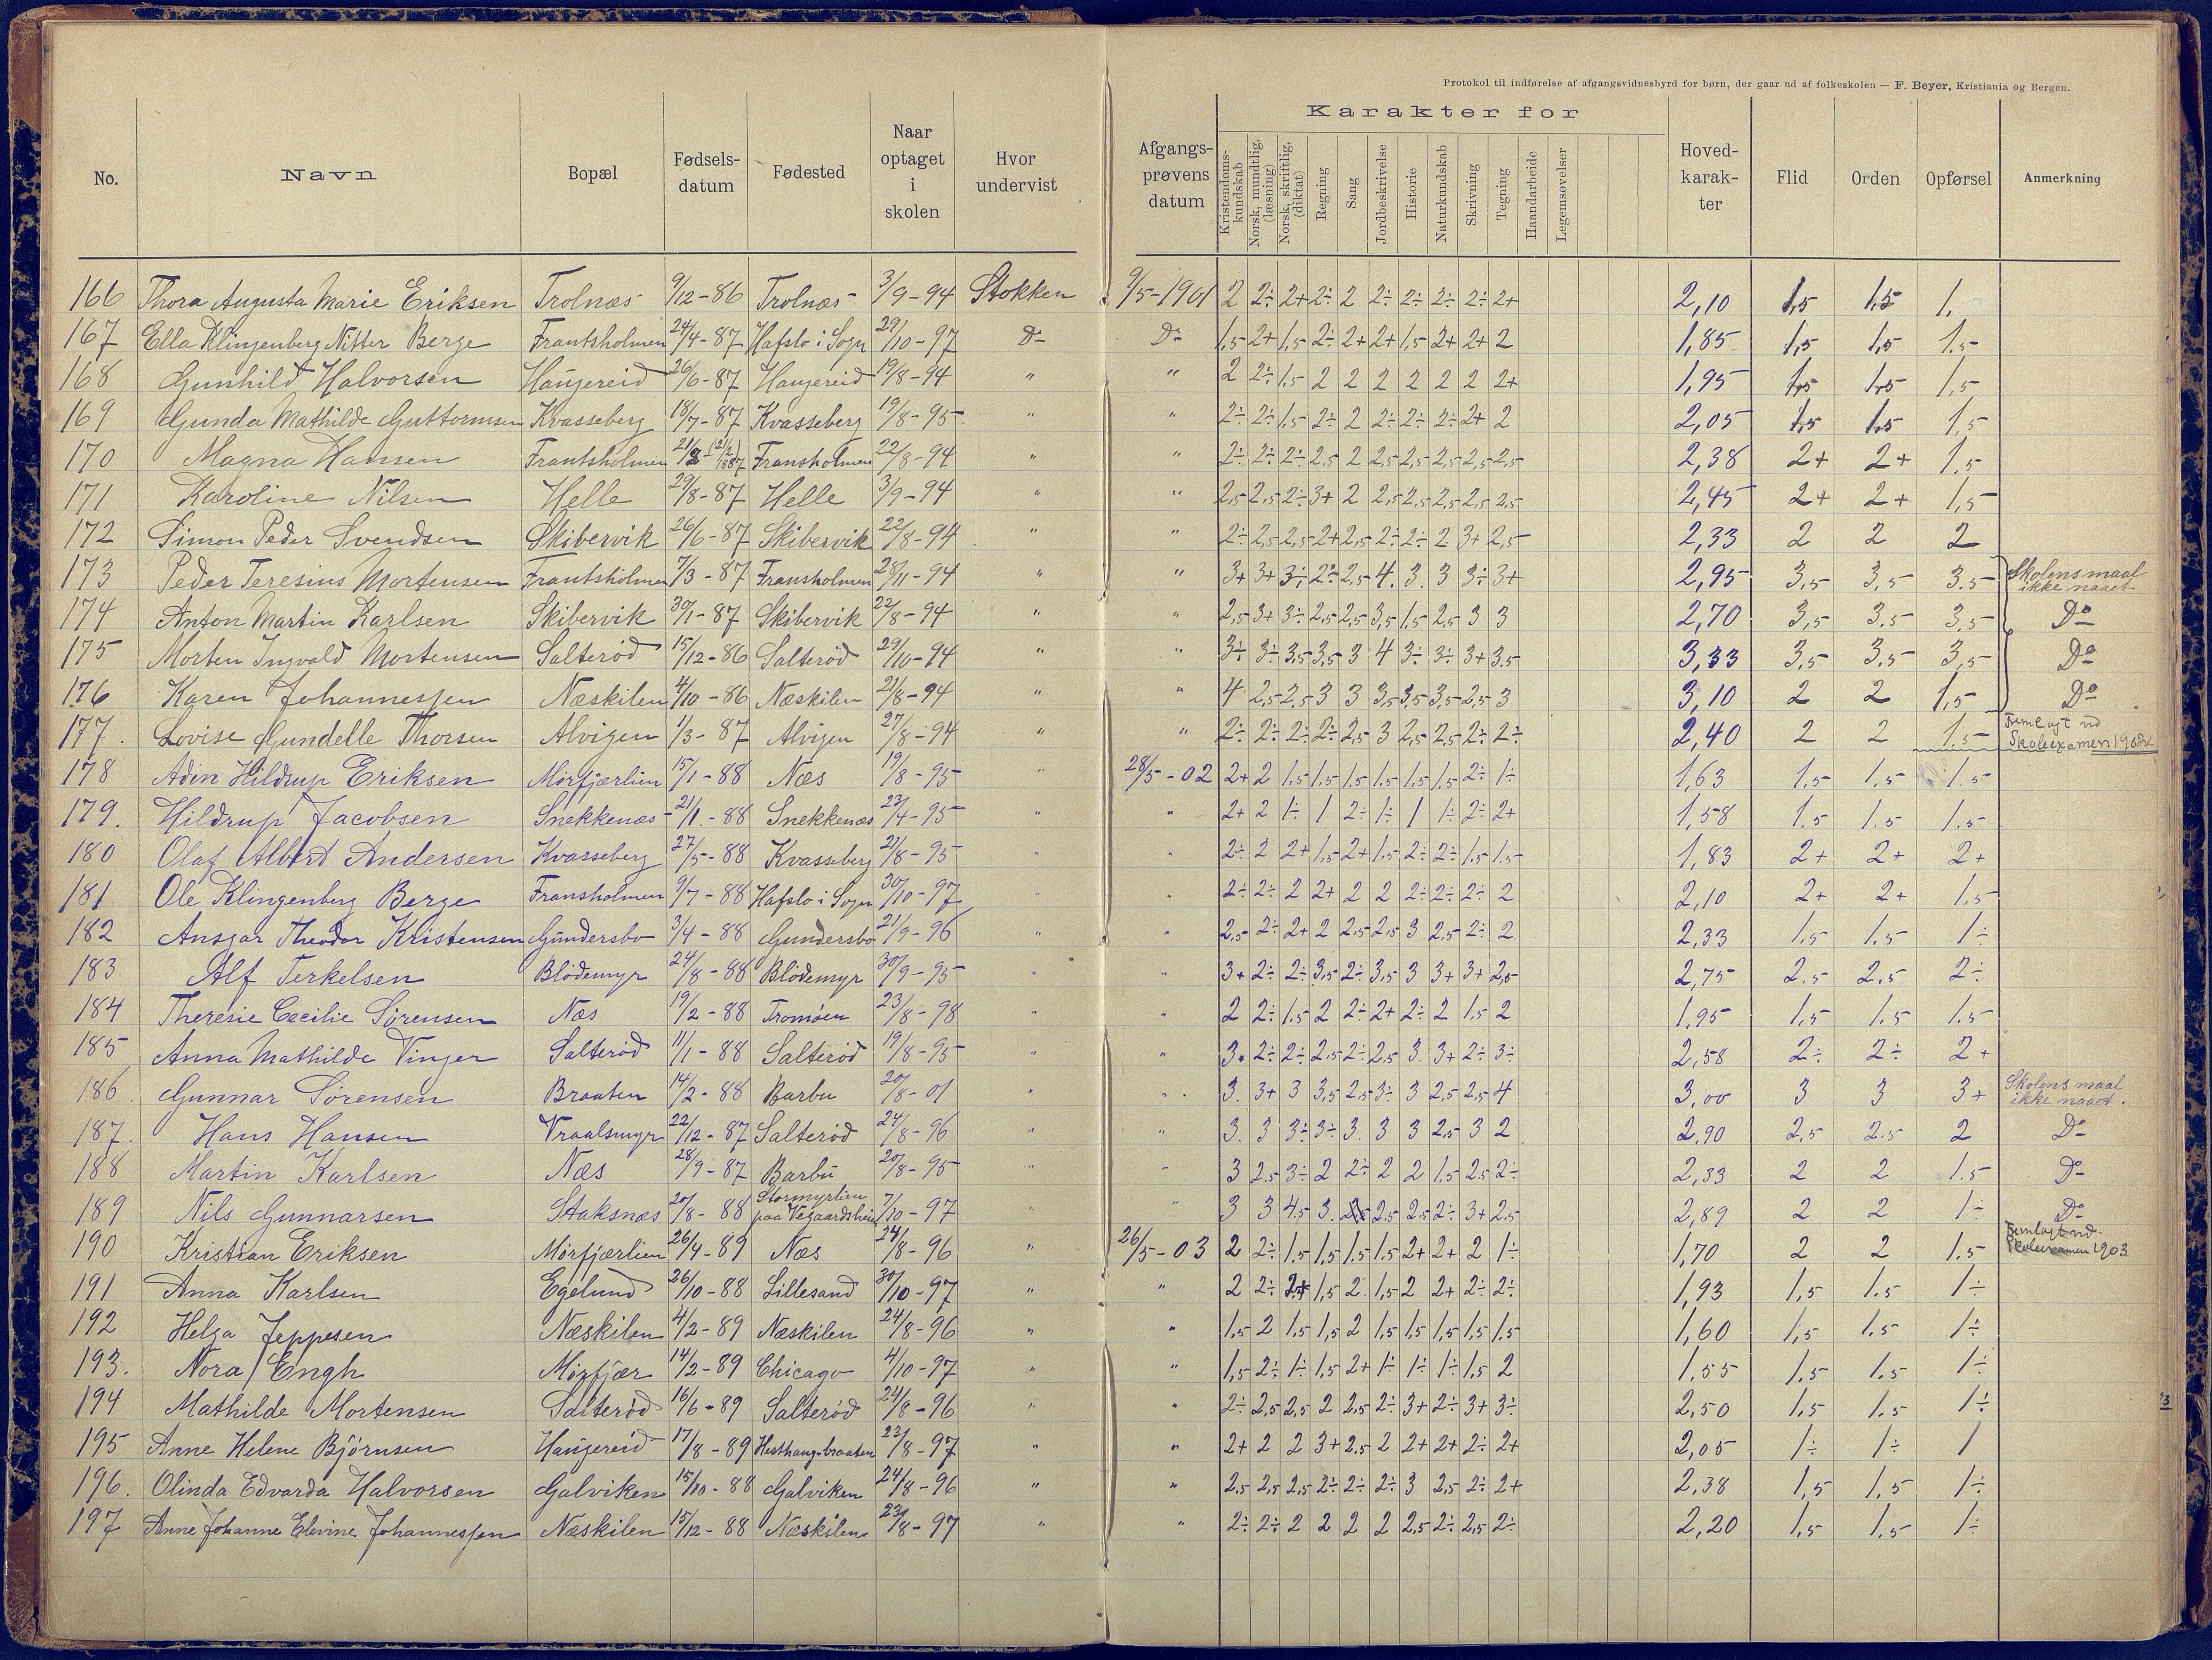 Protokol til indførelse af afgangsvidnesbyrd for børn, der gaar ud af folkeskolen — F. Beyer, Kristiania og Bergen.
No. Navn Bopæl Fødsels-datum Fødested Naar optaget i skolen Hvor undervist Afgangs-prøvens datum Karakter for Kristendoms-kundskab Norsk, mundtlig, (læsning) Norsk, skriftlig, (diktat) Regning Sang Jordbeskrivelse Historie Naturkundskab Skrivning Tegning Haandarbeide Legemsøvelser Hoved-karak-ter Flid Orden Opførsel Anmerkning
166 Thora Augusta Marie Eriksen Trolnæs 9/12-86 Trolnæs 3/9-94 Stokken 9/5-1901 2 2÷ 2+ 2÷ 2 2÷ 2÷ 2÷ 2÷ 2+ 2,10 1,5 1,5 1,
167 Ella Klingenberg Nitter Berge Frantsholmen 24/4-87 Hafslo i Sogn 29/10-97 Do Do 1,5 2+ 1,5 2÷ 2+ 2+ 1,5 2+ 2+ 2 1,85 1,5 1,5 1.5
168 Gunhild Halvorsen Haugereid 26/6-87 Haugereid 19/8-94 " " 2 2÷ 1,5 2 2 2 2 2 2 2+ 1,95 1,5 1,5 1,5
169 Gunda Mathilde Guttormsen Kvasseberg 18/7-87 Kvasseberg 19/8-95 " " 2÷ 2÷ 1,5 2÷ 2 2÷ 2÷ 2÷ 2+ 2 2,05 1,5 1,5 1,5
170 Magna Hansen Frantsholmen Fransholmen 22/8-94 " " 2÷ 2÷ 2÷ 2,5 2 2,5 2,5 2,5 2,5 2,5 2,38 2+ 2+ 1,5
171 Karoline Nilsen Helle 29/8-87 Helle 3/9-94 " " 2,5 2,5 2÷ 3+ 2 2,5 2,5 2,5 2,5 2,5 2,45 2+ 2+ 1,5
172 Simon Peder Svendsen Skibervik 26/6-87 Skibervik 22/8-94 " " 2÷ 2,5 2,5 2+ 2,5 2÷ 2÷ 2 3+ 2,5 2,33 2 2 2
173 Peder Teresius Mortensen Frantsholmen 7/3-87 Fransholmen 28/11-94 " " 3+ 3+ 3÷ 2÷ 2,5 4. 3. 3 3÷ 3+ 2,95 3,5 3,5 3.5 Skolens maal ikke naaet
174 Anton Martin Karlsen Skibervik 30/1-87 Skibervik 22/8-94 " " 2,5 3+ 3÷ 2,5 2,5 3,5 1.5 2,5 3 3 2,70 3,5 3.5 3,5 Do
175 Morten Ingvald Mortensen Salterød 15/12-86 Salterød 29/10-94 " " 3÷ 3÷ 3,5 3,5 3 4 3÷ 3÷ 3+ 3.5 3,33 3,5 3,5 3,5 Do
176 Karen Johannessen Næskilen 4/10-86 Næskilen 21/8-94 " " 4 2,5 2,5 3 3 3,5 3,5 3,5 2,5 3 3,10 2 2 1,5 Do
177. Lovise Gundelle Thorsen Alvigen 1/3-87 Alvigen 27/8-94 " 2÷ 2÷ 2÷ 2÷ 2,5 3 2,5 2,5 2÷ 2÷ 2,40 2 2 1.5 Fremlagt ved Skoleexamen
178 Aden Hildrup Eriksen Mørfjærlien 15/1-88 Næs 19/8-95 " 28/5-02 2+ 2 1,5 1,5 1,5 1,5 1,5 1,5 2÷ 1÷ 1,63 1.5 1.5 1.5
179. Hildrup Jacobsen Snekkenæs 21/1.-88 Snekkenæs 23/4-95 " " 2+ 2 1÷ 1 2÷ 1÷ 1 1÷ 2÷ 2+ 1,58 1.5 1.5 1.5
180 Olaf Albert Andersen Kvasseberg 27/5-88 Kvasseberg 21/8-95 " " 2÷ 2 2+ 1,5 2+ 1,5 2÷ 2÷ 1.5 1.5 1,83 2+ 2+ 2+
181 Ole Klingenberg Berge Fransholmen 9/7-88 Hafslo i Sogn 30/10-97 " " 2÷ 2÷ 2 2+ 2 2 2÷ 2÷ 2÷ 2 2,10 2+ 2+ 1.5
182 Ansgar Theodor Kristensen Gundersbo 3/4-88 Gundersbo 21/9-96 " " 2,5 2÷ 2+ 2 2,5 2,5 3 2,5 2÷ 2 2,33 1.5 1.5 1÷
183 Alf Terkelsen Blødemyr 24/8-88 Blødemyr 30/9-95 " " 3+ 2÷ 2÷ 3,5 2÷ 3,5 3 3+ 3+ 2,5 2,75 2.5 2,5 2÷
184 Theresie Cecilie Sørensen Næs 19/2-88 Tromøen 23/8-98 " " 2 2÷ 1.5 2 2÷ 2+ 2÷ 2 1,5 2 1,95 1.5 1.5 1.5
185 Anna Mathilde Vinger Salterød 11/1-88 Salterød 19/8-95 " " 3. 2÷ 2÷ 2,5 2÷ 2,5 3. 3+ 2÷ 3÷ 2,58 2÷ 2÷ 2+
186 Gunnar Sørensen Braaten 14/2-88 Barbu 20/8-01 " " 3. 3+ 3 3,5 2,5 3÷ 3 2,5 2,5 4 3,00 3 3 3+ Skolens maal ikke naaet.
187. Hans Hansen Vraalsmyr 22/12-87 Salterød 24/8-96 " " 3. 3 3÷ 3÷ 3. 3 3 2,5 3 2 2,90 2,5 2.5 2 Do
188 Martin Karlsen Næs 28/9-87 Barbu 20/8-95 " " 3 2,5 3÷ 2 2÷ 2 2 1.5 2,5 2÷ 2,33 2 2 1.5 Do
189 Nils Gunnarsen Staksnæs 20/8-88 Stormyrlien paa Vegaardsheien 7/10-97 " " 3 3 4,5 3. 2,5 2,5 2÷ 3+ 2,5 2,89 2 2 1÷ Do
190 Kristian Eriksen Mørfjærlien 26/4-89 Næs 24/8-96 " 26/5-03 2 2÷ 1.5 1,5 1,5 1.5 2+ 2+ 2 1÷ 1,70 2 2 1.5 Fremlagt ved. Skoleexamen 1903
191 Anna Karlsen Egelund 26/10-88 Lillesand 30/10-97 " " 2 2÷ 2+ 1,5 2. 1,5 2 2+ 2÷ 2÷ 1,93 1,5 1.5 1÷
192 Helga Jeppesen Næskilen 4/2-89 Næskilen 24/8-96 " " 1,5 2 1,5 1,5 2 1,5 1,5 1,5 1,5 1.5 1,60 1,5 1.5 1÷
193. Nora Engh Mørfjær 14/2-89 Chicago 4/10-97 " " 1,5 2÷ 1÷ 1,5 2+ 1÷ 1÷ 1÷ 1,5 2 1.55 1.5 1.5 1÷
194 Mathilde Mortensen Salterød 16/6-89 Salterød 24/8-96 " " 2÷ 2,5 2,5 2 2,5 2÷ 3+ 2÷ 3+ 3÷ 2,50 1,5 1.5 1÷
195 Anne Helene Bjørnsen Haugereid 17/8-89 23/8-97 " " 2+ 2 2 3+ 2.5 2 2+ 2+ 2÷ 2+ 2,05 1÷ 1÷ 1
196. Olinda Edvarda Halvorsen Galviken 15/10-88 Galviken 24/8-96 " " 2,5 2,5 2,5 2÷ 2÷ 2÷ 3 2,5 2÷ 2+ 2,38 1,5 1,5 1÷
197 Anne Johanne Elevine Johannessen Næskilen 15/12-88 Næskilen 23/8-97 " " 2÷ 2÷ 2 2 2 2 2,5 2÷ 2,5 2÷ 2,20 1,5 1.5 1÷